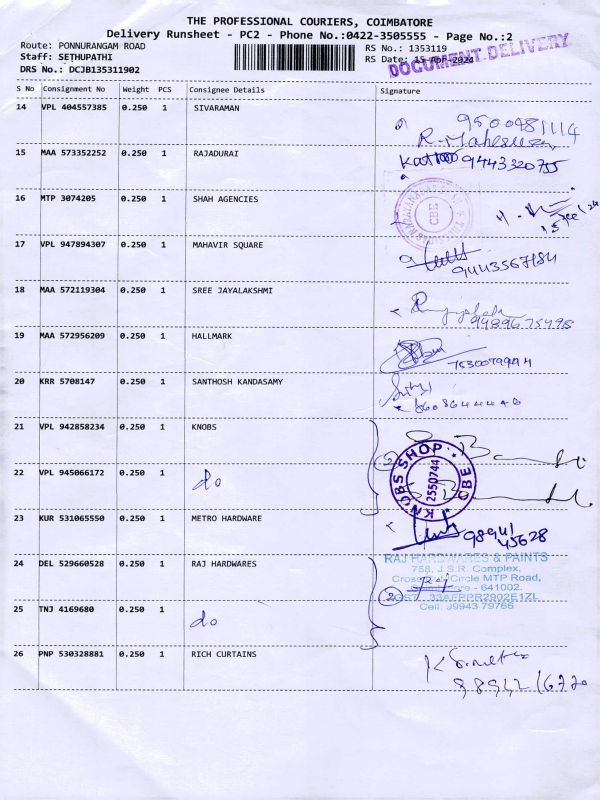 THE PROFESSIONAL COURIERS, COIMBATORE
Delivery Runsheet - PC2 - Phone No.:0422-3505555 - Page No.:2
Route: PONNURANGAM ROAD
RS No.: 1353119
Staff: SETHUPATHI
RS Date: 15-Apr-2024
DRS No.: DCJB135311902
DOCUMENT DELIVERY
S No Consignment No Weight PCS Consignee Details Signature
14 VPL 404557385 0.250 1 SIVARAMAN
9500481114
15 MAA 573352252 0.250 1 RAJADURAI
9443320755
16 MTP 3074205 0.250 1 SHAH AGENCIES
CBE
17 VPL 947894307 0.250 1 MAHAVIR SQUARE
9443567184
18 MAA 572119304 0.250 1 SREE JAYALAKSHMI
9489675498
19 MAA 572956209 0.250 1 HALLMARK
20 KRR 5708147 0.250 1 SANTHOSH KANDASAMY
21 VPL 942858234 0.250 1 KNOBS
KNOBS SHOP CBE
2550744
2
22 VPL 945066172 0.250 1 do
23 KUR 531065550 0.250 1 METRO HARDWARE
98941
45628
24 DEL 529660528 1 RAJ HARDWARES
0.250
RAJ HARDWARES & PAINTS
758, J.S.R. Complex,
Circle MTP Road,
- 641002.
2
25 TNJ 4169680 0.250 1 do
Cell: 99943 79766
26 PNP 530328881 0.250 1 RICH CURTAINS